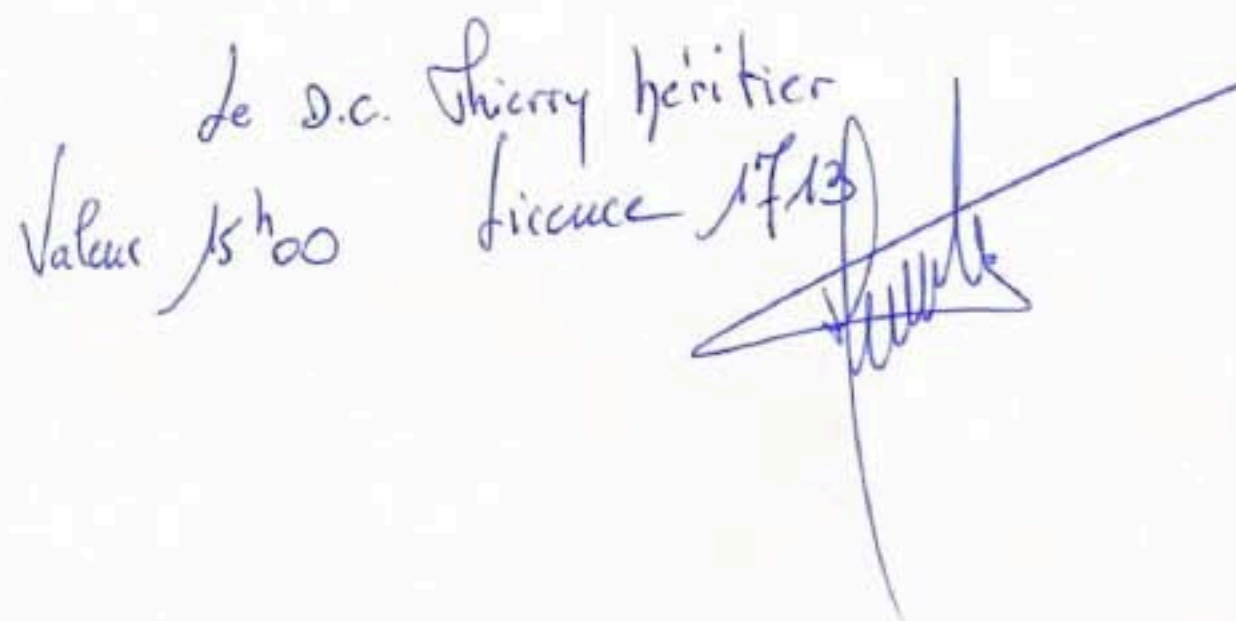 Le D.C. Thierry héritier
Valeur 15h00 Licence 1713